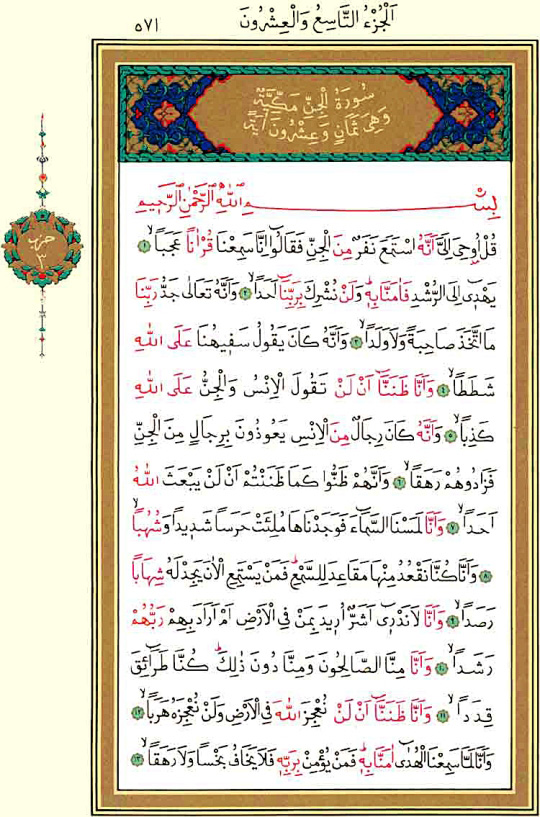 اَلْجُزْءُ التَّاسِعُ وَالْعِشْرُونَ
٥٧١
سُورَةُ الْجِنِّ مَكِّيَّةٌ
وَهِىَ ثَمَانٍ وَعِشْرُونَ اٰيَةً
حزب
٣
بِسْمِ اللّٰهِ الرَّحْمٰنِ الرَّحِيمِ
قُلْ اُوحِىَ اِلَىَّ اَنَّهُ اسْتَمَعَ نَفَرٌ مِنَ الْجِنِّ فَقَالُٓوا اِنَّا سَمِعْنَا قُرْاٰنًا عَجَبًاۙ ﴿١﴾
يَهْدِٓى اِلَى الرُّشْدِ فَاٰمَنَّا بِهٖۜ وَلَنْ نُشْرِكَ بِرَبِّنَٓا اَحَدًاۙ ﴿٢﴾ وَاَنَّهُ تَعَالٰى جَدُّ رَبِّنَا
مَا اتَّخَذَ صَاحِبَةً وَلَا وَلَدًاۙ ﴿٣﴾ وَاَنَّهُ كَانَ يَقُولُ سَفِيهُنَا عَلَى اللّٰهِ
شَطَطًاۙ ﴿٤﴾ وَاَنَّا ظَنَنَّٓا اَنْ لَنْ تَقُولَ الْاِنْسُ وَالْجِنُّ عَلَى اللّٰهِ
كَذِبًاۙ ﴿٥﴾ وَاَنَّهُ كَانَ رِجَالٌ مِنَ الْاِنْسِ يَعُوذُونَ بِرِجَالٍ مِنَ الْجِنِّ
فَزَادُوهُمْ رَهَقًاۙ ﴿٦﴾ وَاَنَّهُمْ ظَنُّوا كَمَا ظَنَنْتُمْ اَنْ لَنْ يَبْعَثَ اللّٰهُ
اَحَدًاۙ ﴿٧﴾ وَاَنَّا لَمَسْنَا السَّمَٓاءَ فَوَجَدْنَاهَا مُلِئَتْ حَرَسًا شَدِيدًا وَشُهُبًاۙ
﴿٨﴾ وَاَنَّا كُنَّا نَقْعُدُ مِنْهَا مَقَاعِدَ لِلسَّمْعِۜ فَمَنْ يَسْتَمِعِ الْاٰنَ يَجِدْ لَهُ شِهَابًا
رَصَدًاۙ ﴿٩﴾ وَاَنَّا لَا نَدْرِٓى اَشَرٌّ اُرِيدَ بِمَنْ فِى الْاَرْضِ اَمْ اَرَادَ بِهِمْ رَبُّهُمْ
رَشَدًاۙ ﴿١٠﴾ وَاَنَّا مِنَّا الصَّالِحُونَ وَمِنَّا دُونَ ذٰلِكَۜ كُنَّا طَرَٓائِقَ
قِدَدًاۙ ﴿١١﴾ وَاَنَّا ظَنَنَّٓا اَنْ لَنْ نُعْجِزَ اللّٰهَ فِى الْاَرْضِ وَلَنْ نُعْجِزَهُ هَرَبًاۙ ﴿١٢﴾
وَاَنَّا لَمَّا سَمِعْنَا الْهُدٰٓى اٰمَنَّا بِهٖۜ فَمَنْ يُؤْمِنْ بِرَبِّهٖ فَلَا يَخَافُ بَخْسًا وَلَا رَهَقًاۙ ﴿١٣﴾